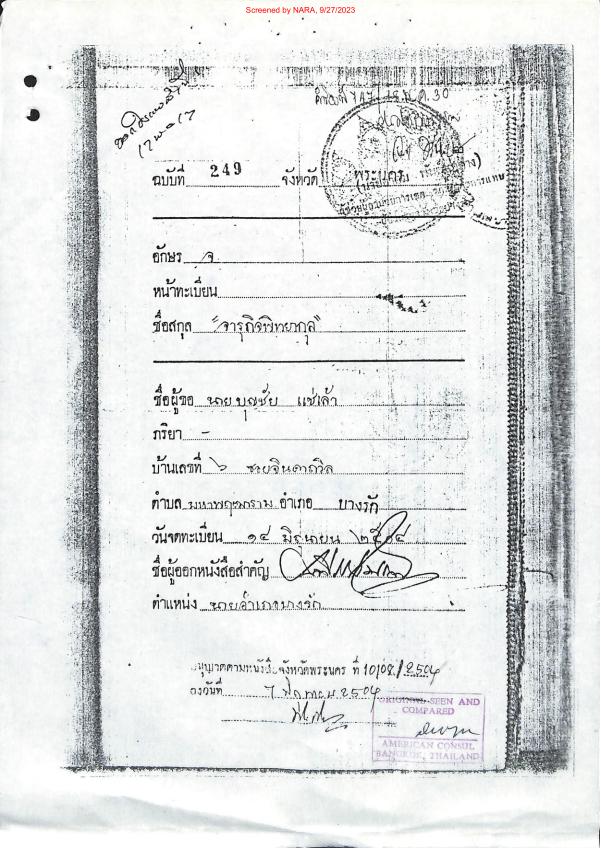 Screened by NARA, 9/27/2023
ฉบับที่ 249 จังหวัด พระนคร
อักษร จ
หน้าทะเบียน
ชื่อสกุล "จารุกิจพิทยากุล"
ชื่อผู้ขอ นายบุญชัย แซ่เล้า
ภริยา -
บ้านเลขที่ ๖ ซอยจินดาถวิล
ตำบล มหาพฤฒาราม อำเภอ บางรัก
วันจดทะเบียน ๑๔ มิถุนายน ๒๕๐๔
ชื่อผู้ออกหนังสือสำคัญ
ตำแหน่ง นายอำเภอบางรัก
อนุญาตตามหนังสือจังหวัดพระนคร ที่ /2504
ลงวันที่ 2504
ORIGINAL SEEN AND
COMPARED
AMERICAN CONSUL
BANGKOK, THAILAND